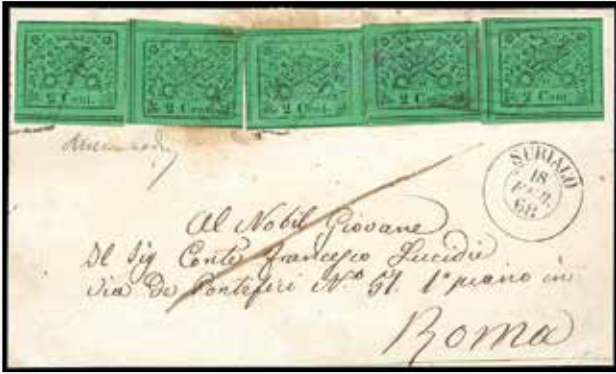 2 Cent. 2 Cent. 2 Cent. 2 Cent. 2 Cent.
SUBIACO
18
FEB.
68
Al Nobil Giovane
Il Sig Conte Francesco Lucidi
Via de Pontefici Nº 51. 1º piano in
Roma